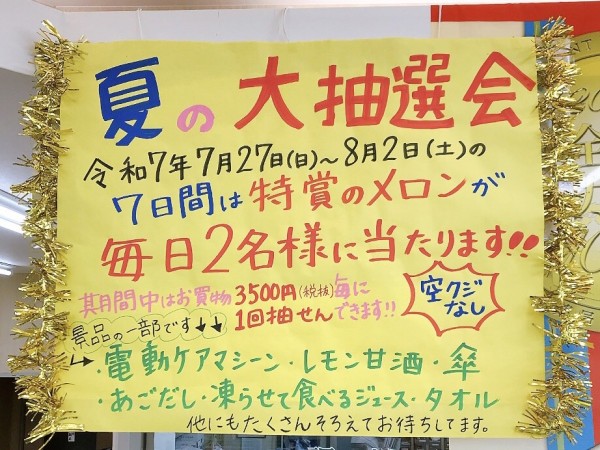 夏の大抽選会
令和7年7月27日(日)～8月2日(土)の
7日間は特賞のメロンが
毎日2名様に当たります!!
期間中はお買物3500円(税抜)毎に
1回抽せんできます!!
空クジなし
景品の一部です↓↓
・電動ケアマシーン・レモン甘酒・傘
・あごだし・凍らせて食べるジュース・タオル
他にもたくさんそろえてお待ちしてます。